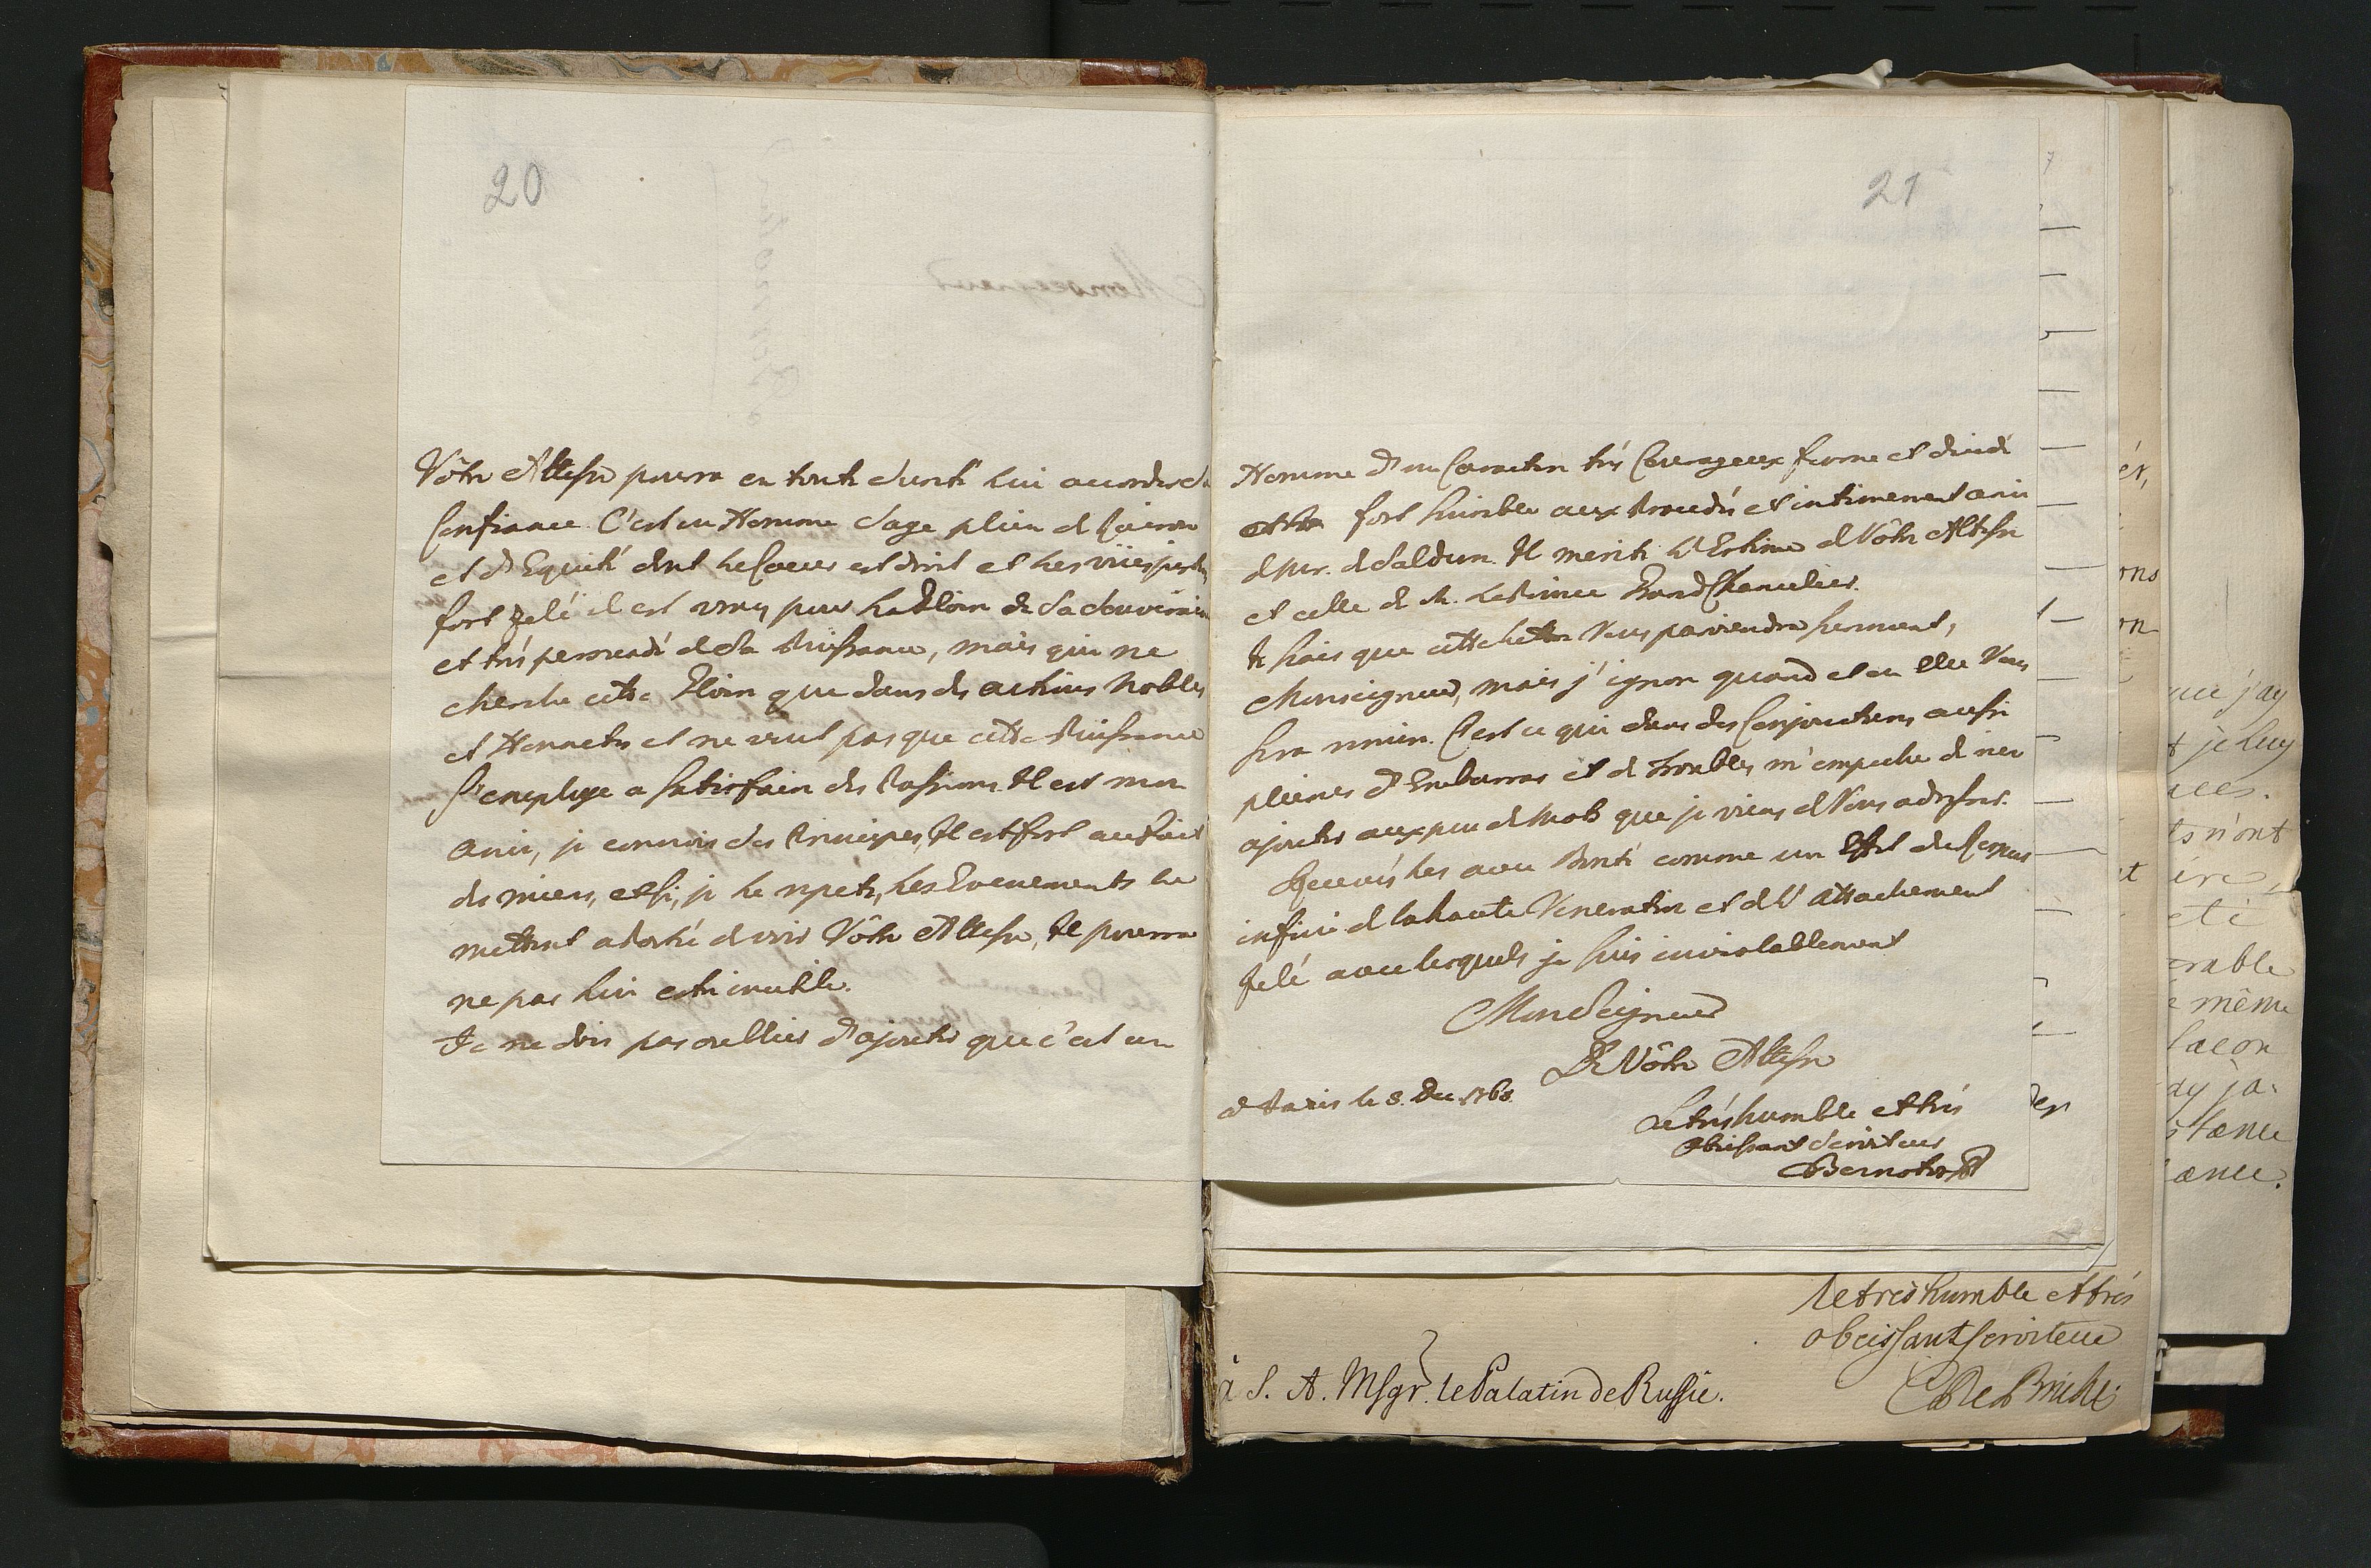 20
Vôtre Altesse pourra en toute sureté lui accorder sa
Confiance. C'est un Homme sage plein de
et d'Equité dont le Coeur est droit et les vües justes
fort zelé il est vray pour la Gloire de sa Souveraine
et très persuadé de sa Puissance, mais qui ne
cherche cette Gloire que dans des actions Nobles
et Honnetes et ne veut pas que cette Puissance
s'employe a satisfaire des Passions. Il est mon
ami, je connois ses Principes, Il est fort au fait
des miens, et si, je le repete, les Evenements le
mettent a portée de voir Vôtre Altesse, Il pourra
ne pas lui estre inutile.
Je ne dois pas oublier d'ajouter que c'est un
21
Homme d'un Caractere très Courageux ferme et decidé
fort sensible aux Procedés et intimement ami
de Mr. de Saldern. Il merite l'Estime de Vôtre Altesse
et celle de M. le Prince Grand Chancelier.
Je sais que cette lettre Vous parviendra surement,
Monseigneur, mais j'ignore quand et ou elle Vous
sera remise. C'est ce qui dans des Conjonctures aussi
pleines d'Embarras et de Troubles m'empeche de rien
ajouter aux peu de Mots que je viens de Vous adresser.
Recevés les avec Bonté comme un Effet du Respect
infini de la haute Veneration et de l'attachement
zelé avec lesquels je suis inviolablement
Monseigneur
De Vôtre Altesse
le 8. Dec. 1768.
Le très humble et très
obeissant Serviteur
Bernstorff
le tres humble et très
obeissant serviteur
C de Brühl
à S. A. Msgr. le Palatin de Russie.
ér,
ons
on
nt
ce j'ay
t je luy
ts n'ont
ire,
eté
erable
e même
façon
ay ja-
stance
ance.